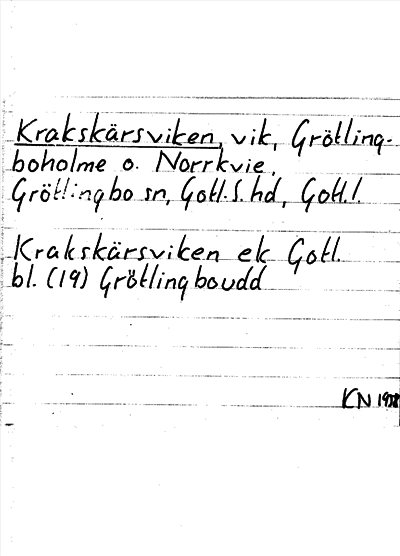 Krakskärsviken, vik, Grötling-
boholme o. Norrkvie,
Grötlingbo sn, Gotl. S. hd, Gotl. l.
Krakskärsviken ek Gotl.
bl. (19) Grötlingboudd
KN